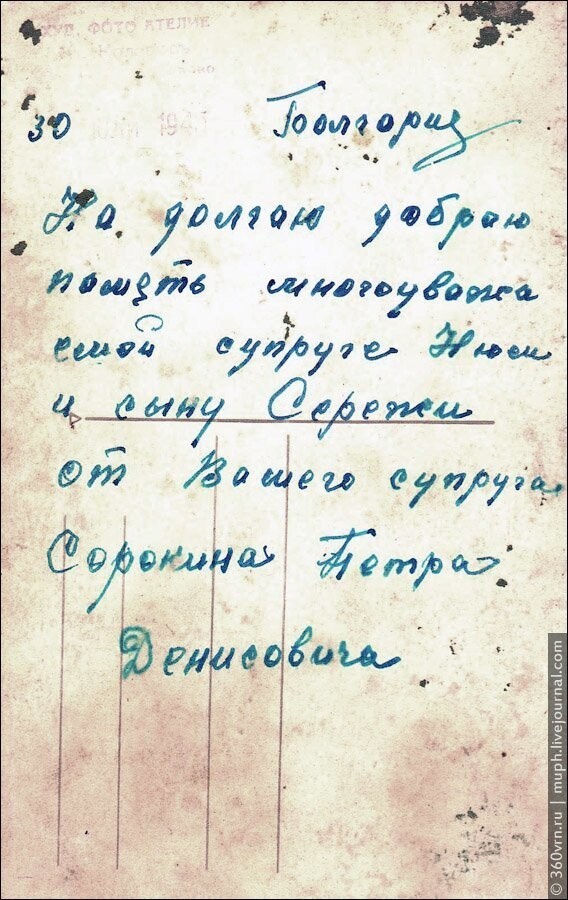 ФОТО АТЕЛИЕ
30 194 Болгария
На долгаю добраю
память многоуважа
емой супруге Нюси
и сыну Сережи
от Вашего супруга
Сорокина Петра
Денисовича
© 360vrn.ru | muph.livejournal.com